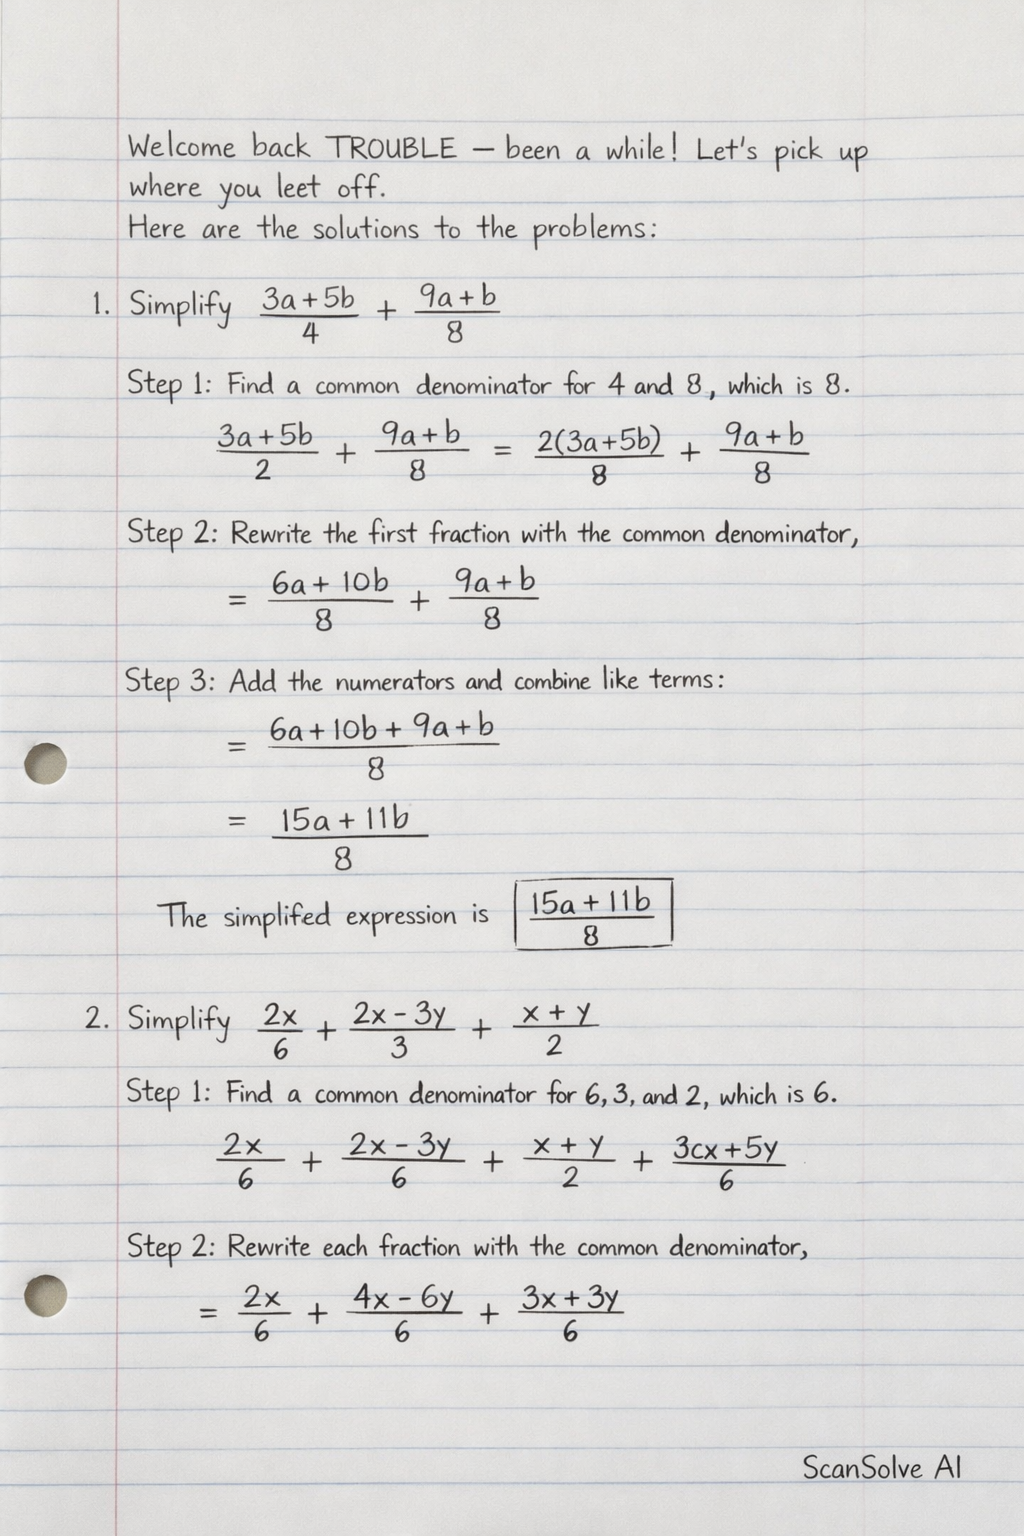 Welcome back TROUBLE — been a while! Let's pick up
where you leet off.
Here are the solutions to the problems:
1. Simplify (3a+5b)/4 + (9a+b)/8
Step 1: Find a common denominator for 4 and 8, which is 8.
(3a+5b)/2 + (9a+b)/8 = 2(3a+5b)/8 + (9a+b)/8
Step 2: Rewrite the first fraction with the common denominator,
= (6a+10b)/8 + (9a+b)/8
Step 3: Add the numerators and combine like terms:
= (6a+10b+9a+b)/8
= (15a+11b)/8
The simplifed expression is (15a+11b)/8
2. Simplify 2x/6 + (2x-3y)/3 + (x+y)/2
Step 1: Find a common denominator for 6, 3, and 2, which is 6.
2x/6 + (2x-3y)/6 + (x+y)/2 + (3cx+5y)/6
Step 2: Rewrite each fraction with the common denominator,
= 2x/6 + (4x-6y)/6 + (3x+3y)/6
ScanSolve AI